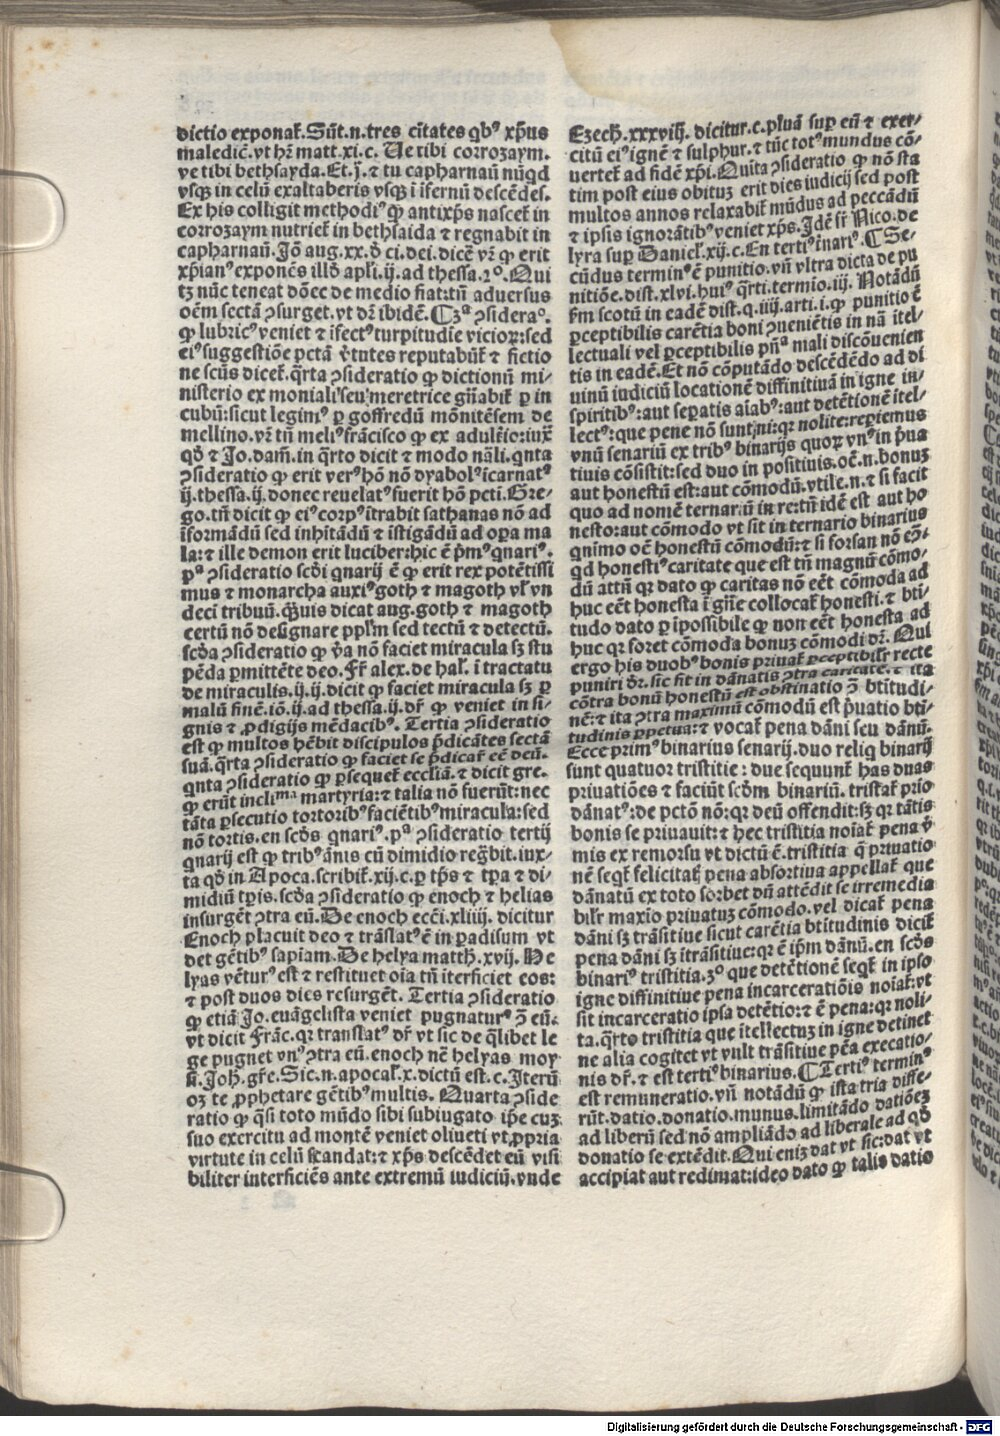 dictio exponat̃. Sũt.n.tres cĩtates qbꝰ xp̃us
maledic̃.vt hr̃ matt.xi.c. Ue tibi corrozaym.
ve tibi bethsayda. Et.ĳ. ⁊ tu capharnaũ nũqd
vsqꝫ in celũ exaltaberis vsqꝫ ĩ ĩfernũ descẽdes.
Ex his colligit methodiꝰ ꝙ antixp̃s nascet̃ in
corrozaym nutriet̃ in bethsaida ⁊ regnabit in
capharnaũ. Jõ aug.xx.d̃ ci.dei.dicẽ vr̃ ꝙ erit
xp̃ianꝰ exponẽs illd̃ apl̃i.ij.ad thessa.2º. Qui
tꝫ nũc teneat dõec de medio fiat:tũ aduersus
oẽm sectã ꝯsurget.vt dr̃ ibidẽ. ¶ 3ª ꝯsideraº.
ꝙ lubricꝰ veniet ⁊ ĩfectꝰ turpitudĩe vicioꝝ:sed
eiꝰ suggestiõe pctã v̾tutes reputabũt̃ ⁊ fictio
ne scũs dicet̃.q̃rta ꝯsideratio ꝙ dictionũ mi⸗
nisterio ex moniali seu meretrice gñabit̃ ꝑ in
cubũ:sicut legimꝰ ꝑ goffredũ mõnitẽsem de
mellino.vr̃ tñ meliꝰ frãcisco ꝙ ex adult̾io:iux̃
qd̃ ⁊ Jo.dam̃.in q̃rto dicit ⁊ modo nãli.qnta
ꝯsideratio ꝙ erit verꝰ hõ nõ dyabolꝰ ĩcarnatꝰ
ij.thessa.ij.donec reuelatꝰ fuerit hõ pcti. Gre⸗
go.tñ dicit ꝙ eiꝰ corpꝰ ĩtrabit sathanas nõ ad
ĩformãdũ sed inhĩtãdũ ⁊ ĩstigãdũ ad oꝑa ma
la:⁊ ille demon erit luciber:hic ẽ p̃mꝰ qnariꝰ.
pª ꝯsideratio scd̃i qnarij ẽ ꝙ erit rex potẽtissi
mus ⁊ monarcha auxiꝰ goth ⁊ magoth vl̃ vn
deci tribuũ.q̃uis dicat aug.goth ⁊ magoth
certũ nõ designare ppl̃m sed tectũ ⁊ detectũ.
scd̃a ꝯsideratio ꝙ v̾a nõ faciet miracula sꝫ stu
pẽda ꝑmittẽte deo. Fr̃ alex.de hal.ĩ tractatu
de miraculis.ij.ij.dicit ꝙ faciet miracula sꝫ ꝑ
malũ finẽ.iõ.ij.ad thessa.ij.dr̃ ꝙ veniet in si⸗
gnis ⁊ ꝓdigijs mẽdacibꝰ. Tertia ꝯsideratio
est ꝙ multos hẽbit discipulos p̃dicãtes sectã
suã.q̃rta ꝯsideratio ꝙ faciet se p̃dicat̃ eẽ deũ.
qnta ꝯsideratio ꝙ ꝑsequet̃ eccl̃iã.⁊ dicit gre.
ꝙ erũt incliᵐᵃ martyria:⁊ talia nõ fuerũt:nec
tãta ꝑsecutio tortoribꝰ faciẽtibꝰ miracula:sed
nõ tortis.en scd̃s qnariꝰ.pª ꝯsideratio tertij
qnarij est ꝙ tribꝰ ãnis cũ dimidio reg̃bit.iux⸗
ta qd̃ in Apoca.scribit̃.xij.c.ꝑ tp̃s ⁊ tp̃a ⁊ di⸗
midiũ tp̃is.scd̃a ꝯsideratio ꝙ enoch ⁊ helias
insurgẽt ꝯtra eũ. De enoch ecc̃i.xliiij.dicitur
Enoch placuit deo ⁊ trãslatꝰ ẽ in ꝑadisum vt
det gẽtibꝰ sapiam. De helya matth̃.xvij. He
lyas vẽturꝰ est ⁊ restituet oĩa tñ ĩterficiet eos:
⁊ post duos dies resurgẽt. Tertia ꝯsideratio
ꝙ etiã Jo.euãgelista veniet pugnaturꝰ ꝯ̃ eũ.
vt dicit Frãc.qr translatꝰ dr̃ vt sic de q̃libet le
ge pugnet vnꝰ ꝯtra eũ.enoch nẽ helyas moy
si. Joh̃.gr̃e. Sic.n.apocal̃.x.dictũ est.c. Iterũ
oꝫ te ꝓphetare gẽtibꝰ multis. Quarta ꝯside
ratio ꝙ q̃si toto mũdo sibi subiugato ip̃e cuꝫ
suo exercitu ad montẽ veniet oliueti vt ꝓpria
virtute in celũ scandat:⁊ xp̃s descẽdet eũ visi
biliter interficiẽs ante extremũ iudiciũ.vnde
Ezech̃.xxxviij. dicitur.c.pluã suꝑ eũ ⁊ exer⸗
citũ eiꝰ ignẽ ⁊ sulphur.⁊ tũc totꝰ mundus cõ⸗
uertet̃ ad fidẽ xp̃i. Quita ꝯsideratio ꝙ nõ sta
tim post eius obituꝫ erit dies iudicij sed post
multos annos relaxabit̃ mũdus ad peccãdũ
⁊ ipsis ignorãtibꝰ veniet xp̃s. Jdẽ sr̃ Nico.de
lyra suꝑ Daniel̃.xij.c. En tertiꝰ ĩnariꝰ. ¶ Se⸗
cũdus terminꝰ ẽ punitio.vñ vltra dicta de pu
nitiõe.dist.xlvi.huiꝰ q̃rti.termio.iij. Notãdũ
fm scotũ in eadẽ dist.q.iiij.arti.i.ꝙ punitio ẽ
ꝑceptibilis carẽtia boni ꝯueniẽtis in nã itel⸗
lectuali vel ꝑceptibilis pñª mali discõuenien
tis in eadẽ. Et nõ cõputãdo descẽdẽdo ad di
uinũ iudiciũ locationẽ diffinitiuã in igne in⸗
spiritibꝰ:aut seꝑatis aĩabꝰ:aut detẽtionẽ itel⸗
lectꝰ:que pene nõ sunt ni:qꝛ nolite:reperiemus
vnũ senariũ ex tribꝰ binarijs quoꝝ vnꝰ in p̃ua
tiuis cõsistit:sed duo in positiuis.oẽ.n.bonuꝫ
aut honestũ est:aut cõmodũ.vtile.n.⁊ si facit
quo ad nomẽ ternarũ in re:tñ idẽ est aut ho
nesto:aut cõmodo vt sit in ternario binarius
qnimo oẽ honestũ cõmodũ:⁊ si forsan nõ eõ⸗
qd honestiꝰ caritate que est tñ magnũ cõmo⸗
dũ attñ qꝛ dato ꝙ caritas nõ eẽt cõmoda ad
huc eẽt honesta ĩ gñe collocat̃ honesti.⁊ bti⸗
tudo dato ꝑ ĩpossibile ꝙ non eẽt honesta ad
huc qꝛ foret cõmoda bonuꝫ cõmodi dr̃. Qui
ergo his duobꝰ bonis priuat̃ ꝑceptibilr̃ recte
puniri dr̃.sic fit in dãnatis ꝯtra caritatẽ.⁊ ita
cõtra bonũ honestũ est obstinatio ꝯ̃ btitudi⸗
nẽ:⁊ ita ꝯtra maximũ cõmodũ est p̃uatio bti⸗
tudinis ꝑpetua:⁊ vocat̃ pena dãni seu dãnũ.
Ecce primꝰ binarius senarij.duo reliq binarij
sunt quatuor tristitie: due sequunt̃ has duas
priuatiões ⁊ faciũt scd̃m binariũ.tristat̃ prio
dãnatꝰ:de pctõ nõ:qꝛ deũ offendit:sꝫ qꝛ tãtis
bonis se priuauit:⁊ hec tristitia noĩat̃ pena v̾
mis ex remorsu vt dictũ ẽ.tristitia q̃ priuatio
nẽ seqt̃ felicitatꝭ pena absortiua appellat̃ que
dãnatũ ex toto sorbet dũ attẽdit se irremedia
bilr̃ maxĩo priuatuꝫ cõmodo.vel dicat̃ pena
dãni sꝫ trãsitiue sicut carẽtia btitudinis dicit̃
pena dãni sꝫ ĩtrãsitiue:qꝛ ẽ ip̃m dãnũ.en scd̃s
binariꝰ tristitia.3º que detẽtionẽ seqt̃ in ipso
igne diffinitiue pena incarceratiõis noĩat̃:vt
sit incarceratio ipsa detẽtio:⁊ ẽ pena:qꝛ noli⸗
ta.q̃rto tristitia que itellectuꝫ in igne detinet
ne alia cogitet vt vult trãsitiue pẽa execatio⸗
nis dr̃.⁊ est tertiꝰ binarius. ¶ Tertiꝰ terminꝰ
est remuneratio.vñ notãdũ ꝙ ista tria diffe⸗
rũt.datio.donatio.munus.limitãdo datiõeꝫ
ad liberũ sed nõ ampliãdo ad liberale ad qd̃
donatio se extẽdit. Qui enĩꝫ dat vt sic:dat vt
accipiat aut redimat:ideo dato ꝙ talis datio
Digitalisierung gefördert durch die Deutsche Forschungsgemeinschaft - DFG